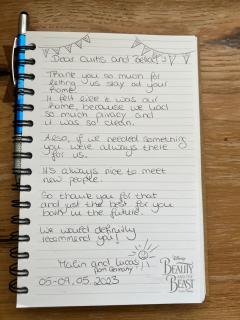 Dear Curtis and Zelda! :)
Thank you so much for
letting us stay at your
home.
It felt like it was our
home, because we had
so much privacy and
it was so clean.
Also, if we needed something
you were always there
for us.
It's always nice to meet
new people.
So thank you for that
and just the best for you
both in the future.
We would definitly
recommend you!
Malin and Lucas
from Germany
05-09.05.2023
Disney
BEAUTY
AND THE
BEAST